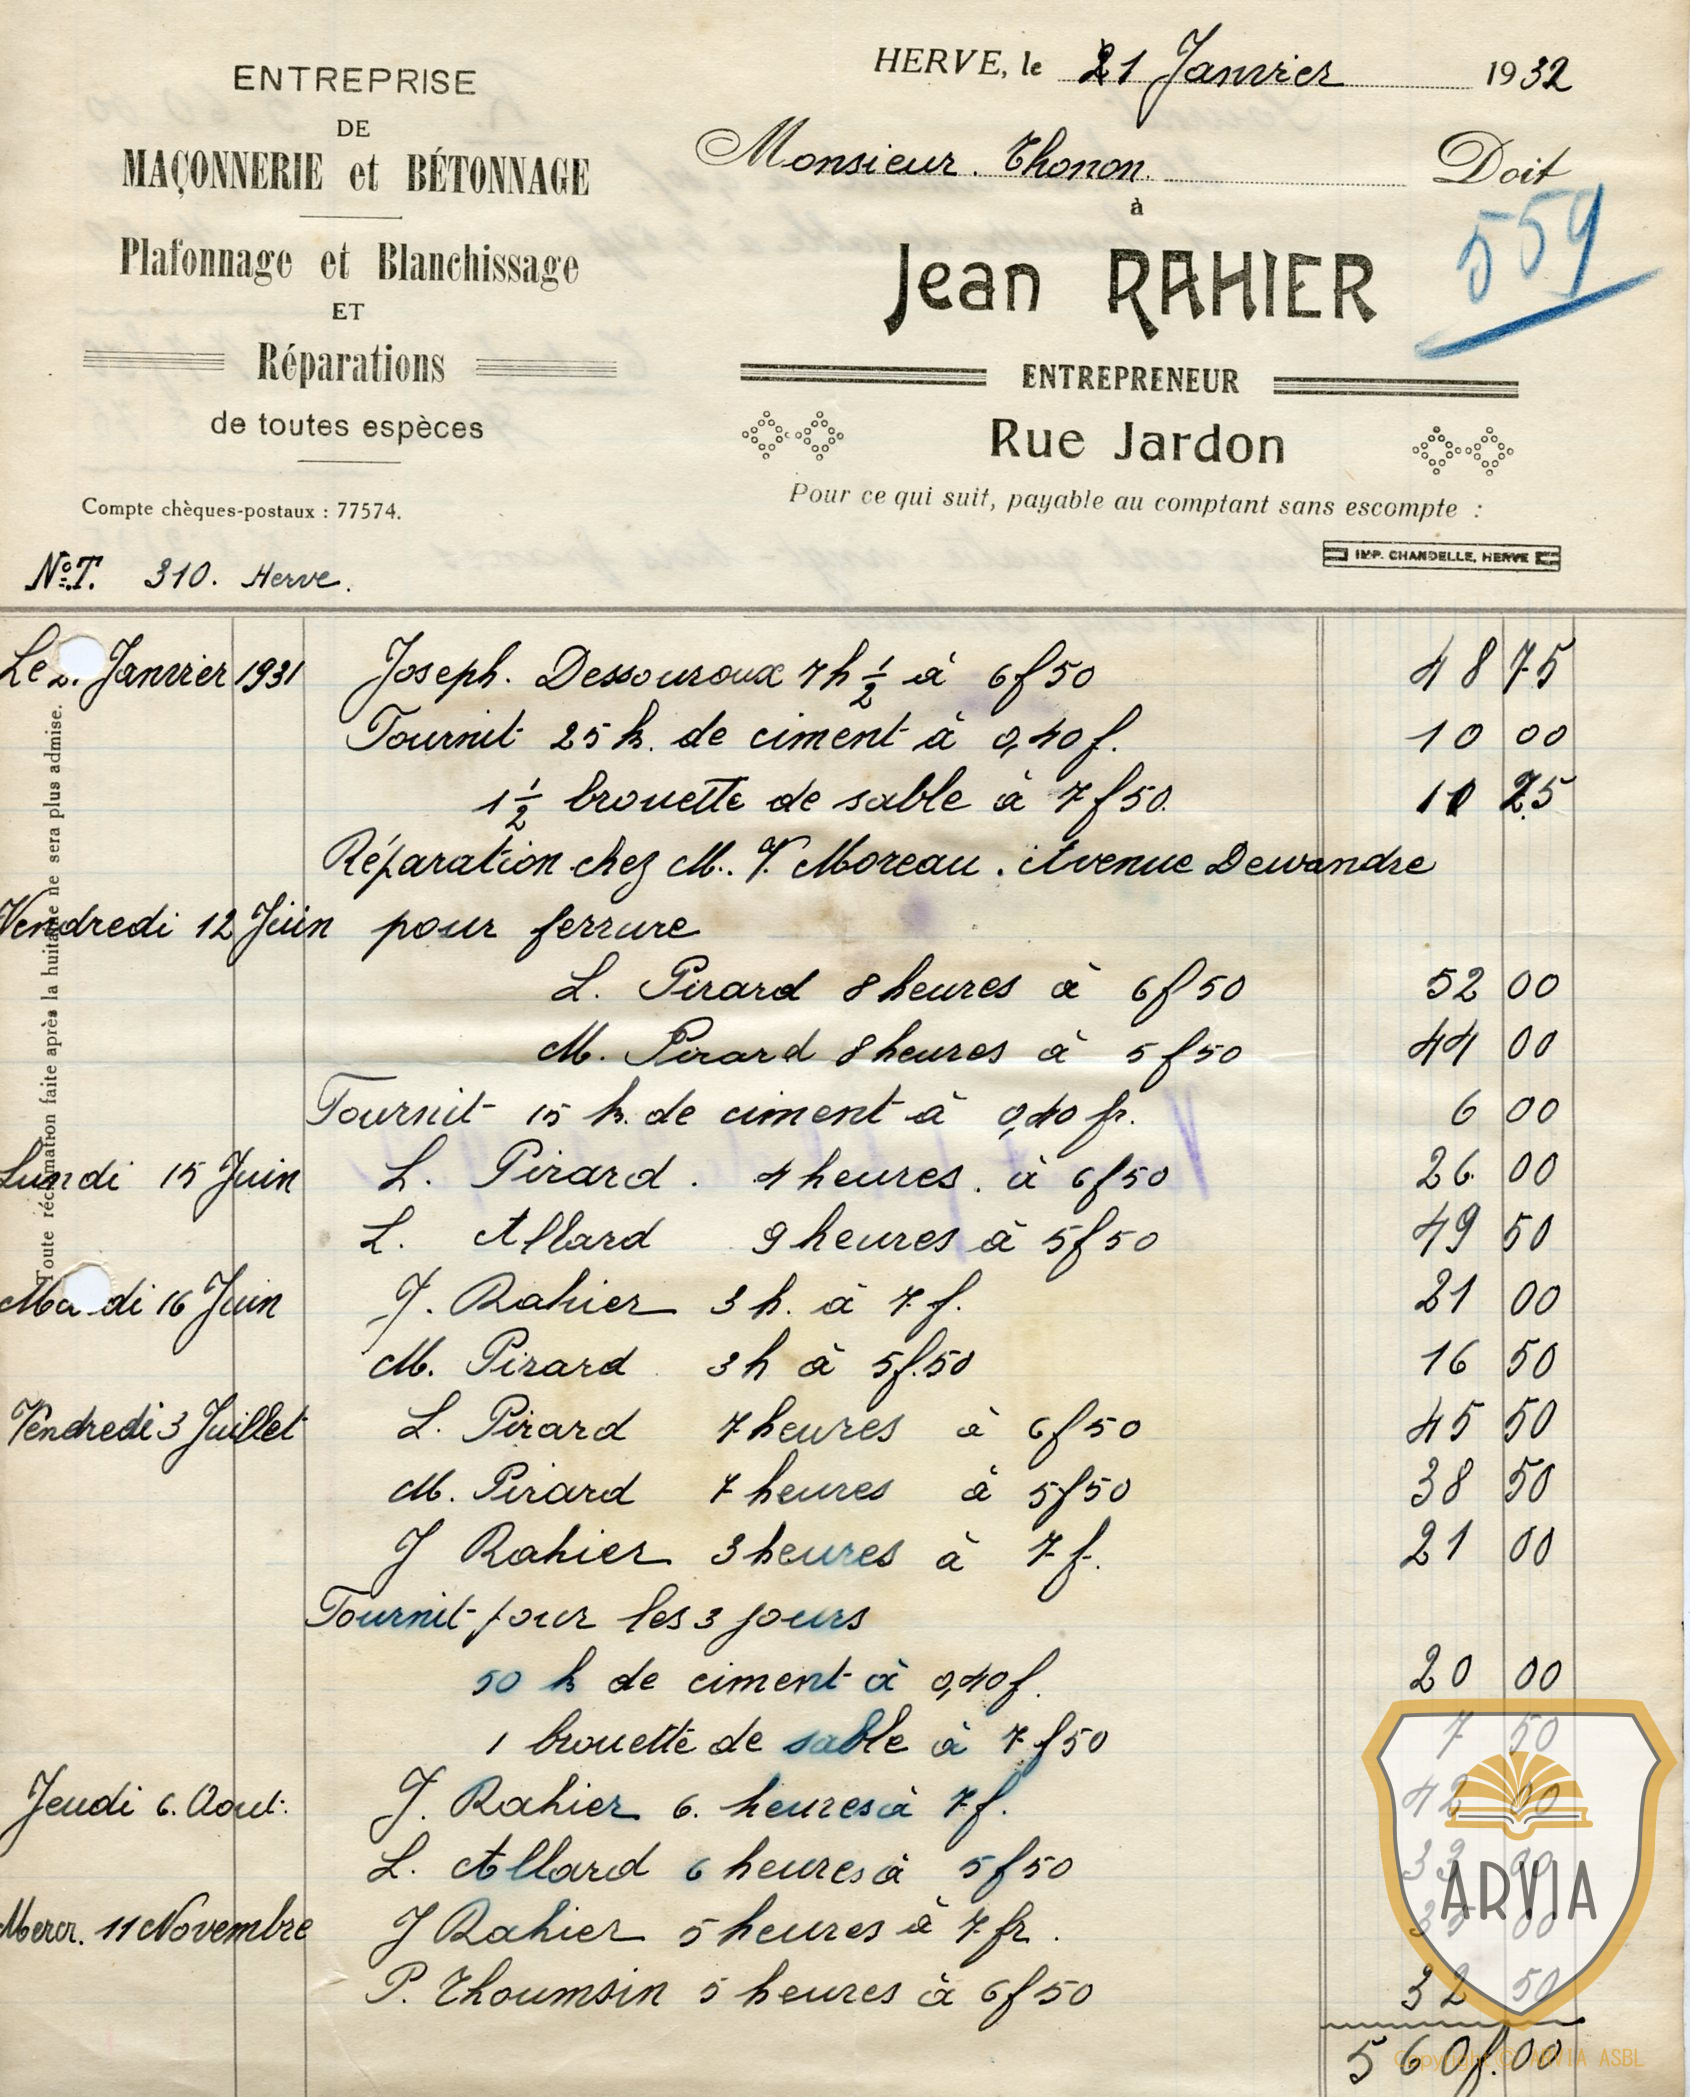 ENTREPRISE
DE
MAÇONNERIE et BÉTONNAGE
Plafonnage et Blanchissage
ET
Réparations
de toutes espèces
Compte chèques-postaux : 77574.
N° T. 310. Herve.
HERVE, le 21 Janvier 1932
Monsieur. Thonon. Doit
à
559
Jean RAHIER
ENTREPRENEUR
Rue Jardon
Pour ce qui suit, payable au comptant sans escompte :
IMP. CHANDELLE, HERVE
Toute réclamation faite après la huitaine ne sera plus admise.
Le 2. Janvier 1931 Joseph. Dessouroux 7h ½ à 6f50 48 75
Fournit 25 k. de ciment à 0,40 f. 10 00
1 ½ brouette de sable à 7f50. 11 25
Réparation chez M. V. Moreau. Avenue Dewandre
Vendredi 12 Juin pour ferrure
L. Pirard 8 heures à 6f50 52 00
M. Pirard 8 heures à 5f50 44 00
Fournit 15 k. de ciment à 0,40 fr. 6 00
Lundi 15 Juin L. Pirard. 4 heures. à 6f50 26 00
L. Allard 9 heures à 5f50 49 50
Mardi 16 Juin J. Rahier 3 h. à 7 f. 21 00
M. Pirard 3h à 5f.50 16 50
Vendredi 3 Juillet L. Pirard 7 heures à 6f50 45 50
M. Pirard 7 heures à 5f50 38 50
J Rahier 3 heures à 7 f. 21 00
Fournit pour les 3 jours
50 k de ciment à 0,40 f. 20 00
1 brouette de sable à 7 f50 7 50
Jeudi 6. Aout. J. Rahier 6. heures à 7 f. 42 00
L. Allard 6 heures à 5f50 33 00
Mercr. 11 Novembre J Rahier 5 heures à 7 fr. 35 00
P. Thoumsin 5 heures à 6f50 32 50
560f.00
ARVIA
Copyright © ARVIA ASBL